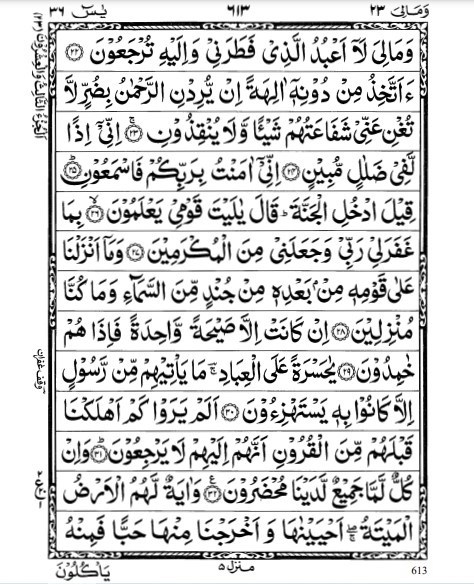 وَمَالِیَ ٢٣ ٦١٣ يٰسٓ ٣٦
اَلْجُزْءُ الثَّالِثُ وَالْعِشْرُوْنَ (٢٣)
وَمَالِیَ لَاۤ اَعْبُدُ الَّذِیْ فَطَرَنِیْ وَاِلَیْهِ تُرْجَعُوْنَ ﴿٢٢﴾
ءَاَتَّخِذُ مِنْ دُوْنِهٖۤ اٰلِهَةً اِنْ یُّرِدْنِ الرَّحْمٰنُ بِضُرٍّ لَّا
تُغْنِ عَنِّیْ شَفَاعَتُهُمْ شَیْـًٔا وَّلَا یُنْقِذُوْنِ ﴿٢٣﴾ اِنِّیْۤ اِذًا
لَّفِیْ ضَلٰلٍ مُّبِیْنٍ ﴿٢٤﴾ اِنِّیْۤ اٰمَنْتُ بِرَبِّكُمْ فَاسْمَعُوْنِ ﴿٢٥﴾
قِیْلَ ادْخُلِ الْجَنَّةَ ؕ قَالَ یٰلَیْتَ قَوْمِیْ یَعْلَمُوْنَ ﴿٢٦﴾ بِمَا
غَفَرَلِیْ رَبِّیْ وَجَعَلَنِیْ مِنَ الْمُكْرَمِیْنَ ﴿٢٧﴾ وَمَاۤ اَنْزَلْنَا
عَلٰی قَوْمِهٖ مِنْۢ بَعْدِهٖ مِنْ جُنْدٍ مِّنَ السَّمَآءِ وَمَا كُنَّا
مُنْزِلِیْنَ ﴿٢٨﴾ اِنْ كَانَتْ اِلَّا صَیْحَةً وَّاحِدَةً فَاِذَا هُمْ
خٰمِدُوْنَ ﴿٢٩﴾ یٰحَسْرَةً عَلَی الْعِبَادِ ۚ مَا یَاْتِیْهِمْ مِّنْ رَّسُوْلٍ
وقف غفران
اِلَّا كَانُوْا بِهٖ یَسْتَهْزِءُوْنَ ﴿٣٠﴾ اَلَمْ یَرَوْا كَمْ اَهْلَكْنَا
قَبْلَهُمْ مِّنَ الْقُرُوْنِ اَنَّهُمْ اِلَیْهِمْ لَا یَرْجِعُوْنَ ﴿٣١﴾ وَاِنْ
كُلٌّ لَّمَّا جَمِیْعٌ لَّدَیْنَا مُحْضَرُوْنَ ﴿٣٢﴾ وَاٰیَةٌ لَّهُمُ الْاَرْضُ
الْمَیْتَةُ ۖۚ اَحْیَیْنٰهَا وَ اَخْرَجْنَا مِنْهَا حَبًّا فَمِنْهُ
یَاْكُلُوْنَ منزل ٥ 613